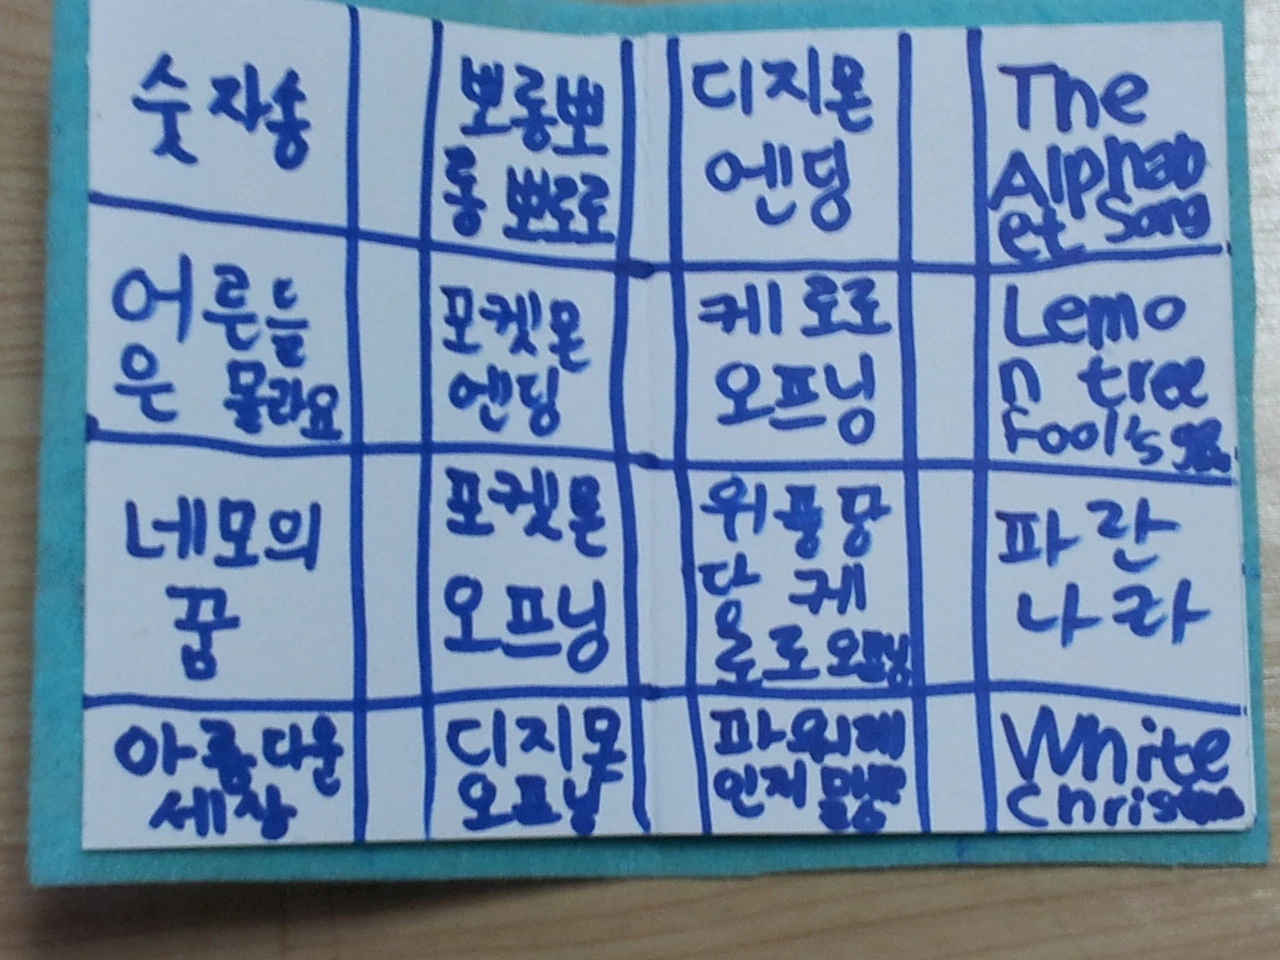 숫자송
뽀롱뽀
롱 뽀로로
디지몬
엔딩
The
Alphab
et Song
어른들
은 몰라요
포켓몬
엔딩
케로로
오프닝
Lemo
n tree
Fool's
네모의
꿈
포켓몬
오프닝
위풍당
당 케
로로 오프닝
파란
나라
아름다운
세상
디지몬
오프닝
파워레
인저
White